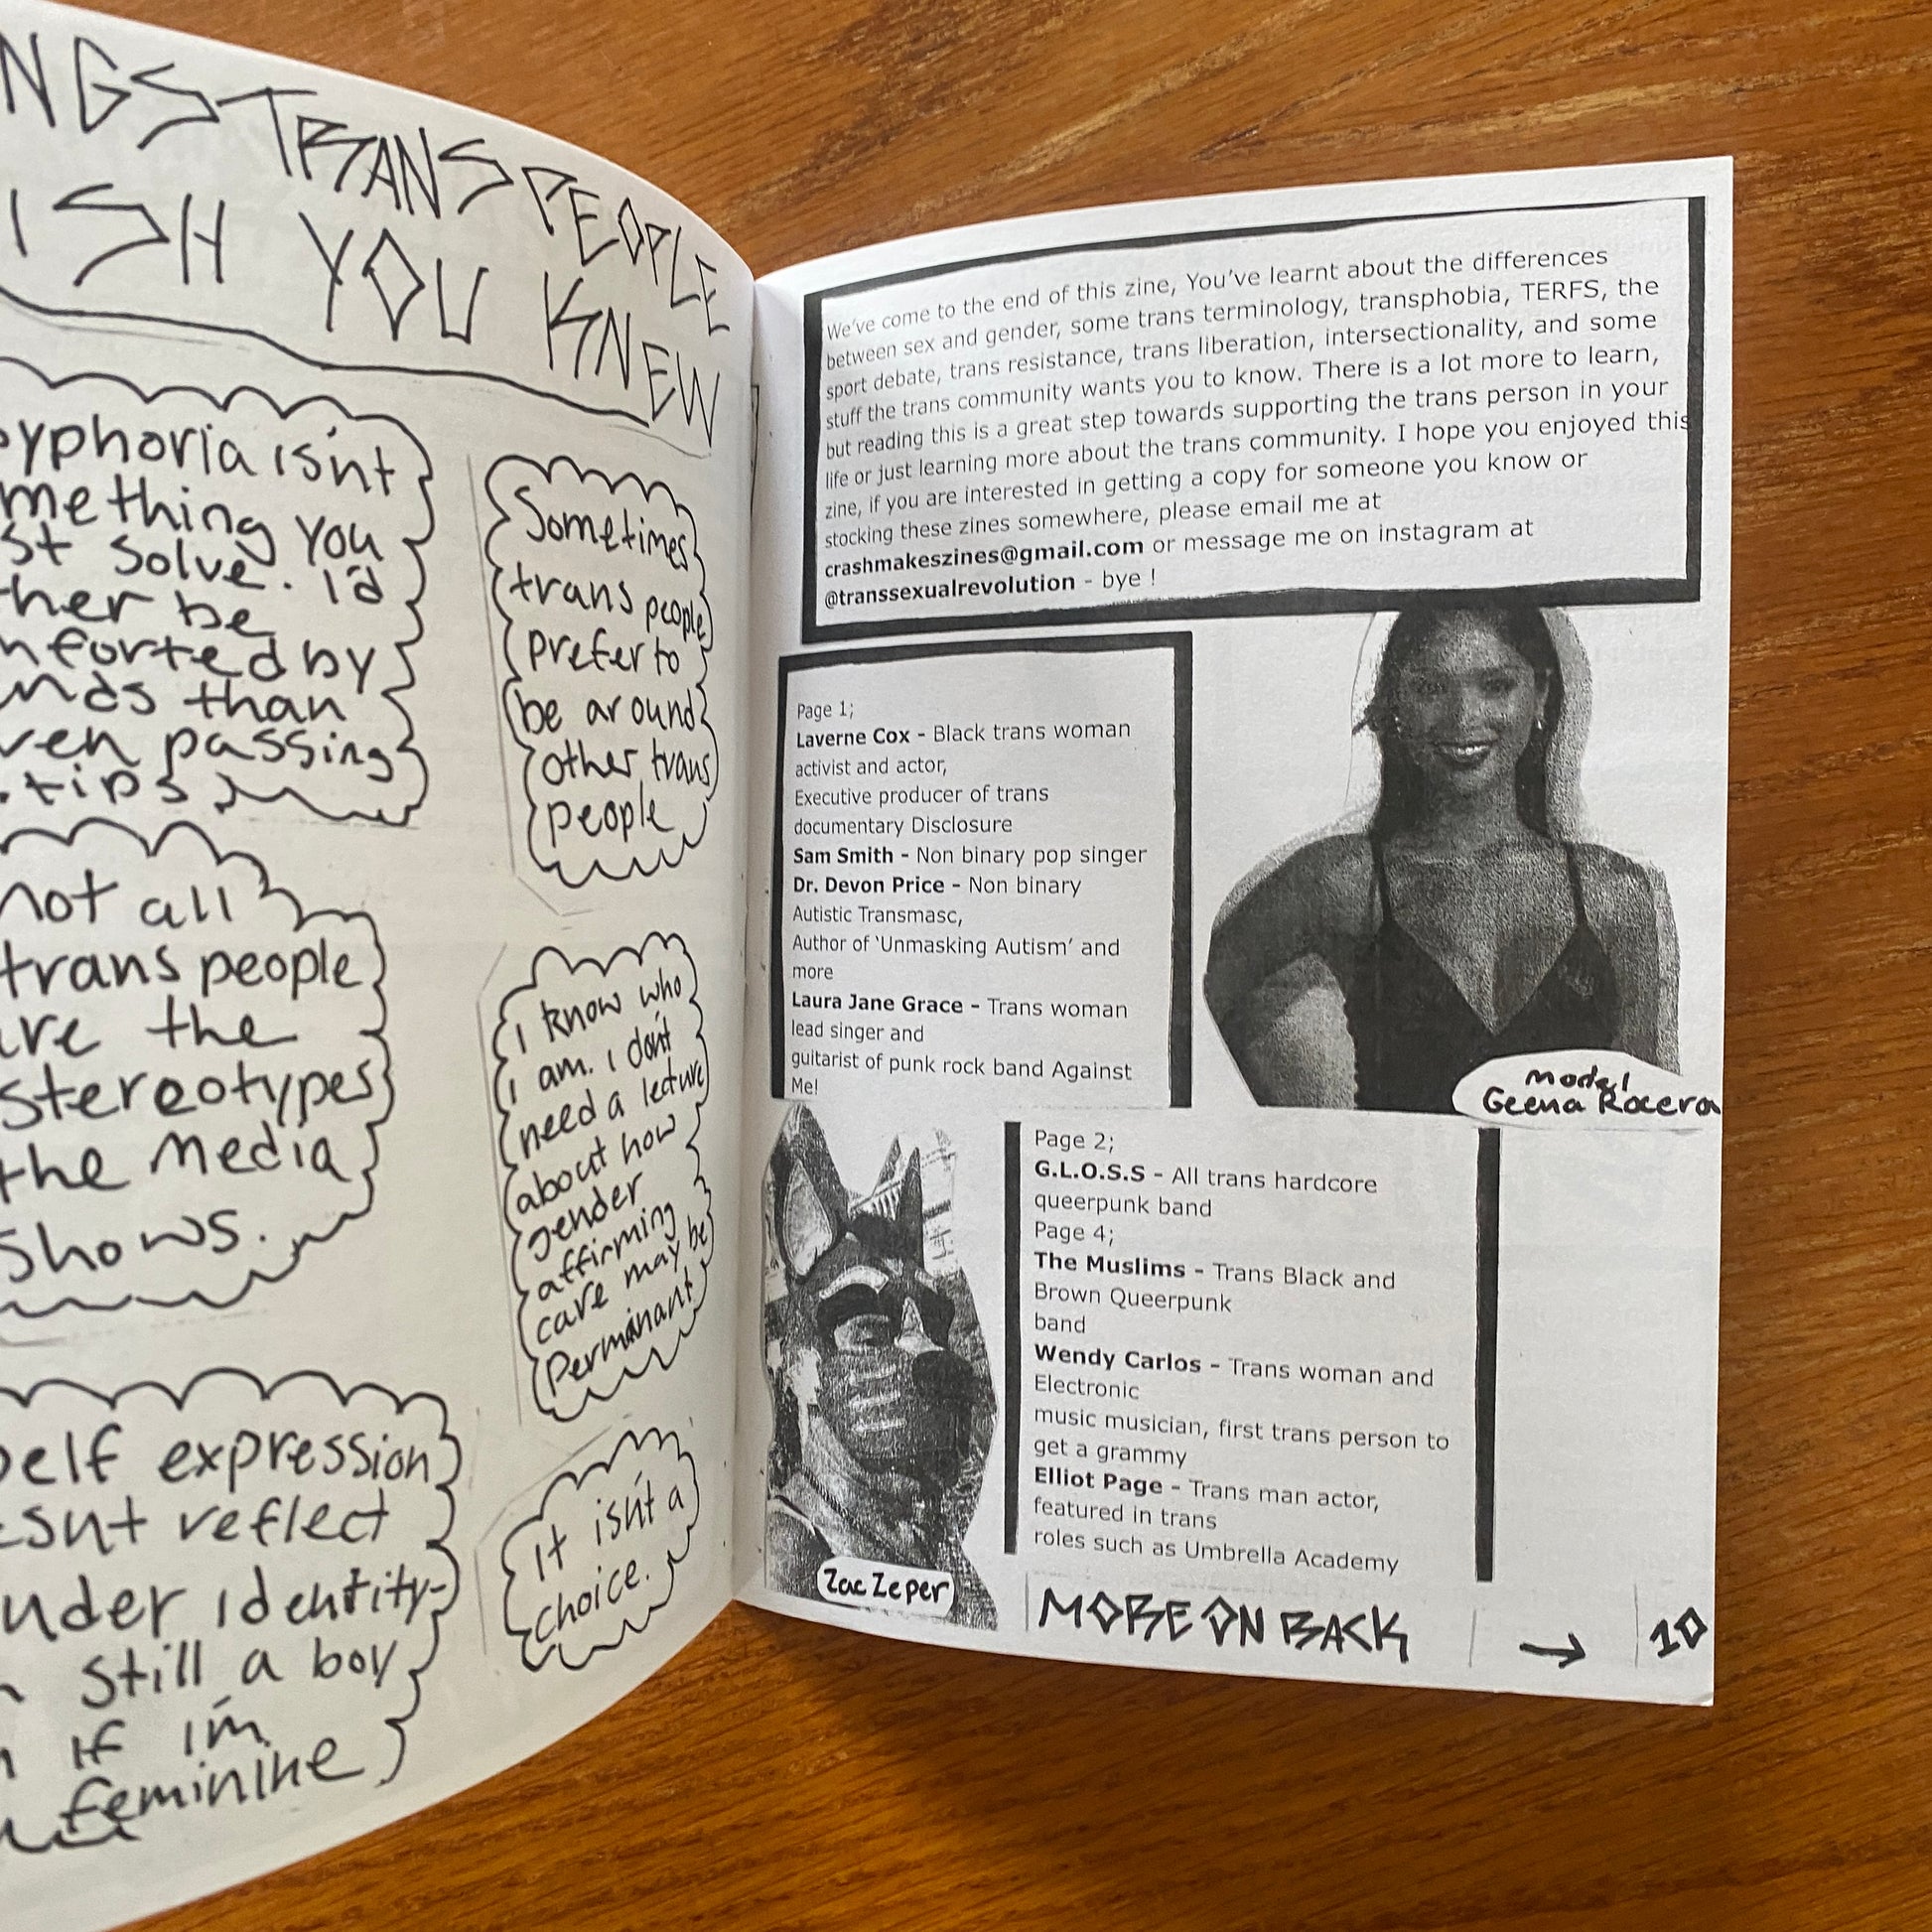 NGS TRANS PEOPLE
ISH YOU KNEW
yphoria isn't
mething you
st solve. I'd
ther be
mforted by
nds than
ven passing
tips
Sometimes
trans people
prefer to
be around
other trans
people
not all
trans people
are the
stereotypes
the media
shows.
I know who
I am. I don't
need a lecture
about how
gender
affirming
care may be
Perminant
self expression
esnt reflect
nder identity-
still a boy
if im
feminine
It isn't a
choice.
We've come to the end of this zine, You've learnt about the differences
between sex and gender, some trans terminology, transphobia, TERFS, the
sport debate, trans resistance, trans liberation, intersectionality, and some
stuff the trans community wants you to know. There is a lot more to learn,
but reading this is a great step towards supporting the trans person in your
life or just learning more about the trans community. I hope you enjoyed this
zine, if you are interested in getting a copy for someone you know or
stocking these zines somewhere, please email me at
crashmakeszines@gmail.com or message me on instagram at
@transsexualrevolution - bye !
Page 1;
Laverne Cox - Black trans woman
activist and actor,
Executive producer of trans
documentary Disclosure
Sam Smith - Non binary pop singer
Dr. Devon Price - Non binary
Autistic Transmasc,
Author of 'Unmasking Autism' and
more
Laura Jane Grace - Trans woman
lead singer and
guitarist of punk rock band Against
Me!
Model
Geena Rocera
Page 2;
G.L.O.S.S - All trans hardcore
queerpunk band
Page 4;
The Muslims - Trans Black and
Brown Queerpunk
band
Wendy Carlos - Trans woman and
Electronic
music musician, first trans person to
get a grammy
Elliot Page - Trans man actor,
featured in trans
roles such as Umbrella Academy
Zac Zeper
MORE ON BACK → 10